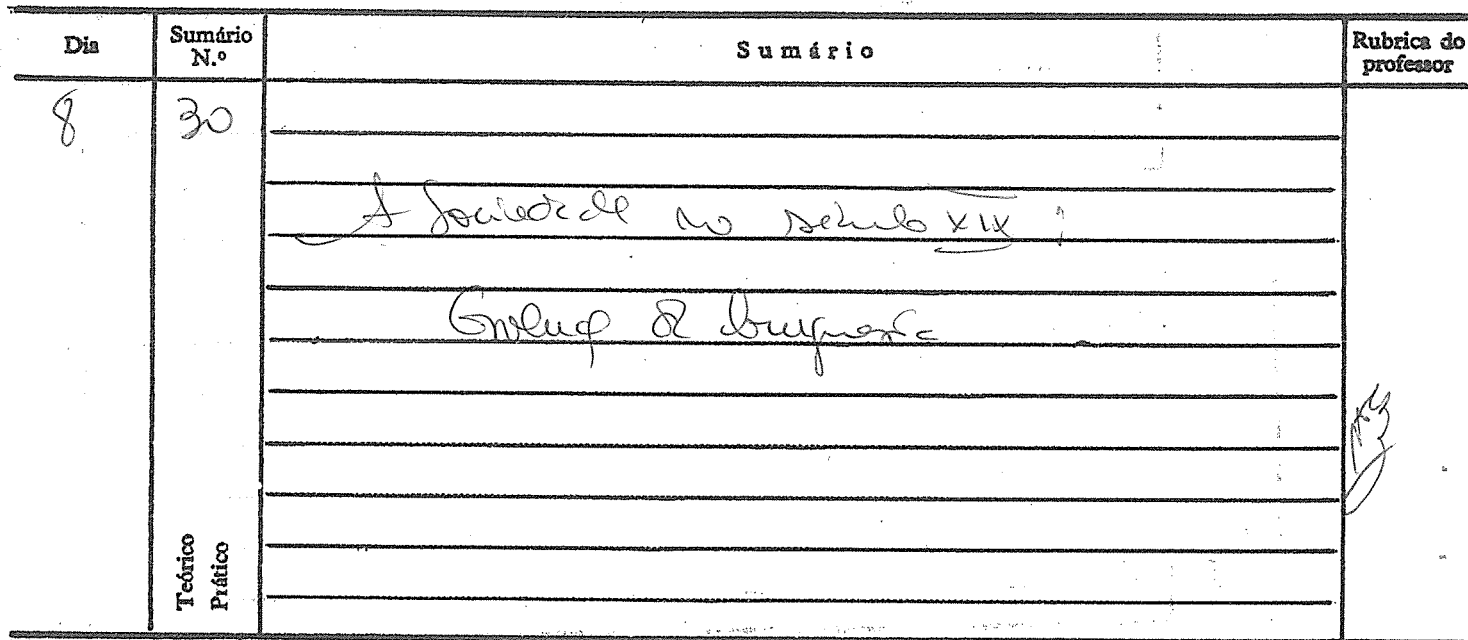 Dia Sumário N.º Sumário Rubrica do professor
8 30
A Sociedade no século XIX:
burguesia
Teórico
Prático